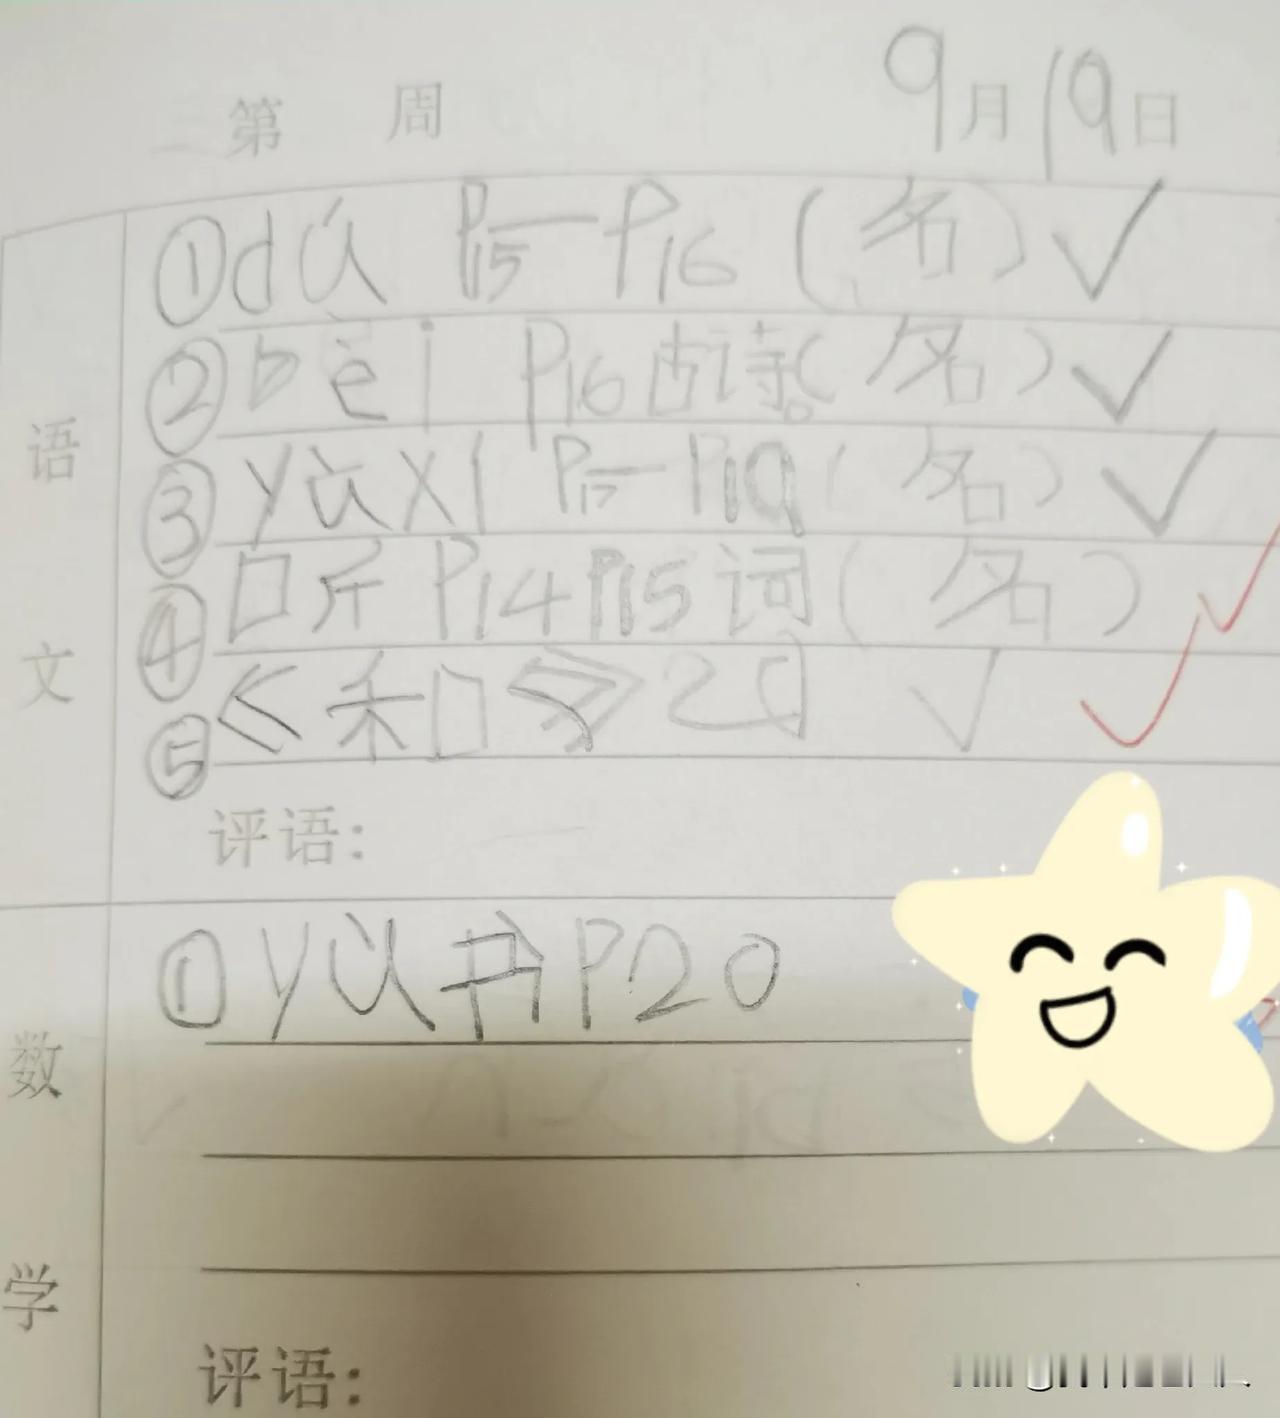 第 周 9月19日
语文
①dú P15—P16(名)✓
②bèi P16古诗。(名)✓
③yùxí P17—P19(名)✓
④口斤 P14P15词(名)
⑤《和》2d ✓
评语：
数学
①yù书P20
评语：